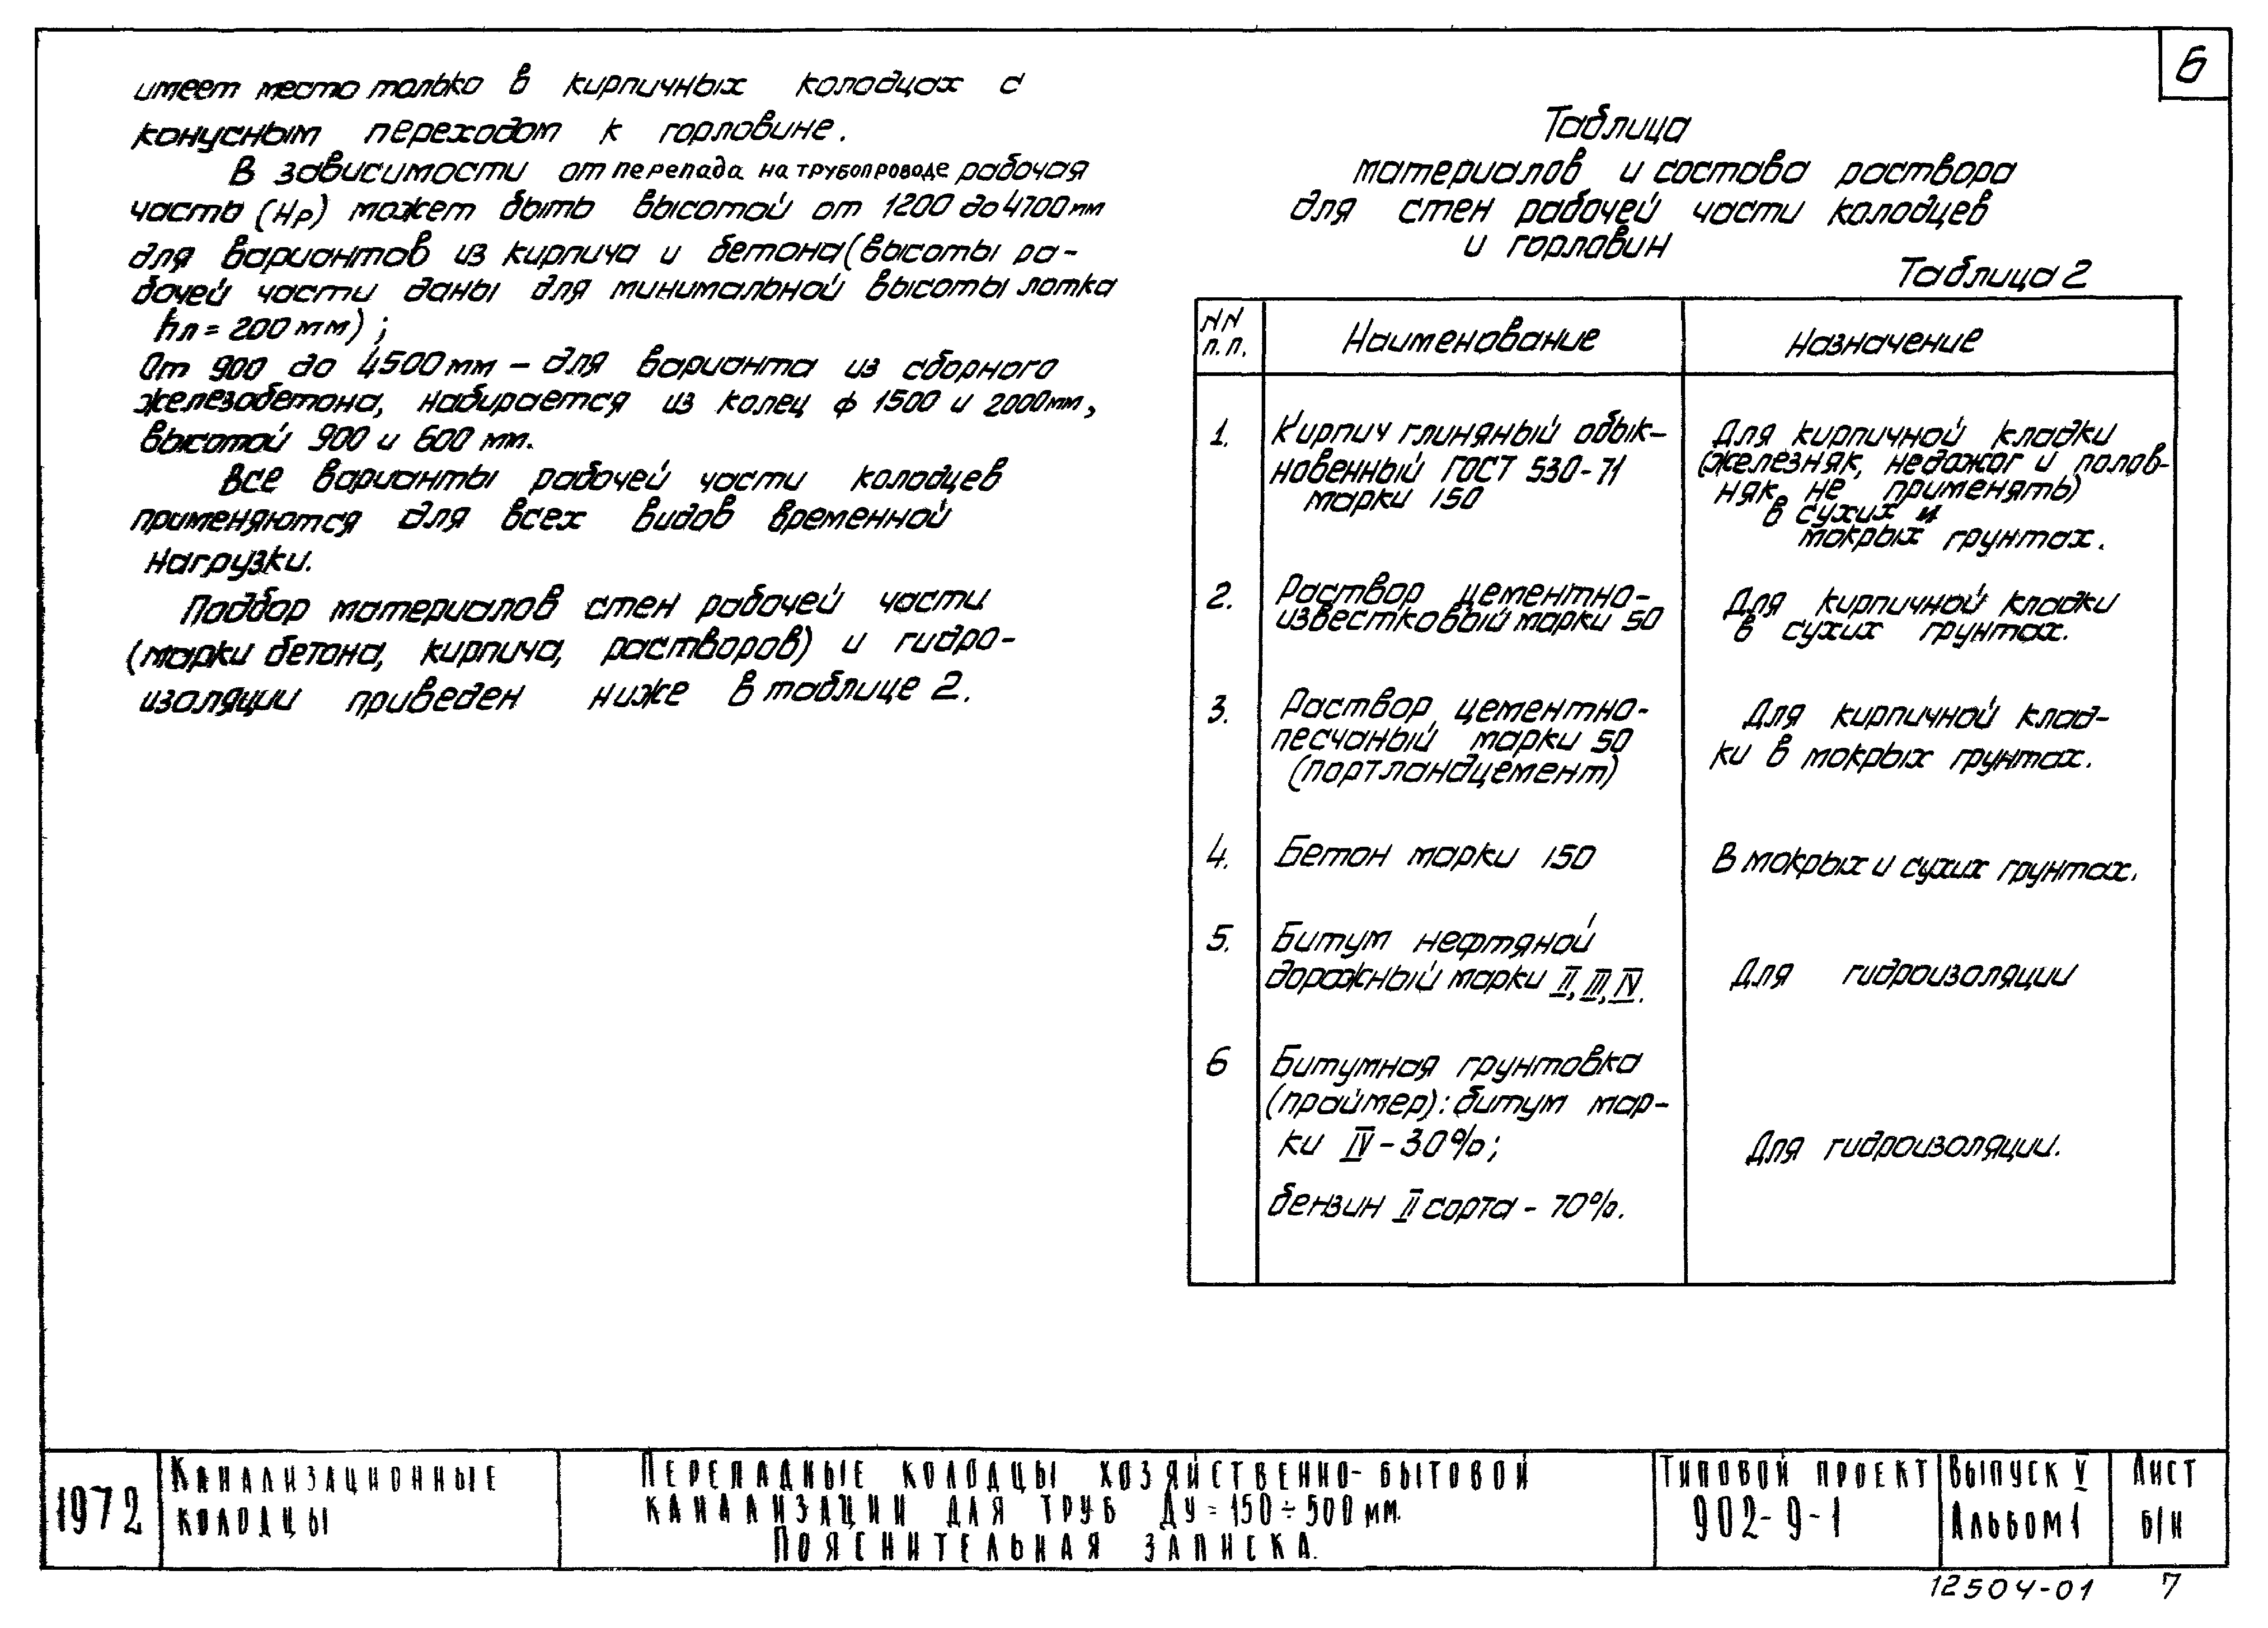 6
имеет место только в кирпичных колодцах с
конусным переходом к горловине.
В зависимости от перепада на трубопроводе рабочая
часть (Нр) может быть высотой от 1200 до 4700 мм
для вариантов из кирпича и бетона (высоты ра-
бочей части даны для минимальной высоты лотка
hл = 200 мм);
От 900 до 4500 мм – для варианта из сборного
железобетона, набирается из колец ф 1500 и 2000 мм,
высотой 900 и 600 мм.
Все варианты рабочей части колодцев
применяются для всех видов временной
нагрузки.
Подбор материалов стен рабочей части
(марки бетона, кирпича, растворов) и гидро-
изоляции приведен ниже в таблице 2.
Таблица
материалов и состава раствора
для стен рабочей части колодцев
и горловин
Таблица 2
NN
п.п.
Наименование
Назначение
1.
Кирпич глиняный обык-
новенный ГОСТ 530-71
марки 150
Для кирпичной кладки
(железняк, недожог и полов-
няк не применять)
в сухих и
мокрых грунтах.
2.
Раствор цементно-
известковый марки 50
Для кирпичной кладки
в сухих грунтах.
3.
Раствор цементно-
песчаный марки 50
(портландцемент)
Для кирпичной клад-
ки в мокрых грунтах.
4.
Бетон марки 150
В мокрых и сухих грунтах.
5.
Битум нефтяной
дорожный марки II, III, IV.
Для гидроизоляции
6
Битумная грунтовка
(праймер): битум мар-
ки IV – 30%;
бензин II сорта – 70%.
Для гидроизоляции.
1972
Канализационные
колодцы
Перепадные колодцы хозяйственно-бытовой
канализации для труб Ду = 150 ÷ 500 мм.
Пояснительная записка.
Типовой проект
902-9-1
Выпуск V
Альбом 1
Лист
б/н
12504-01
7